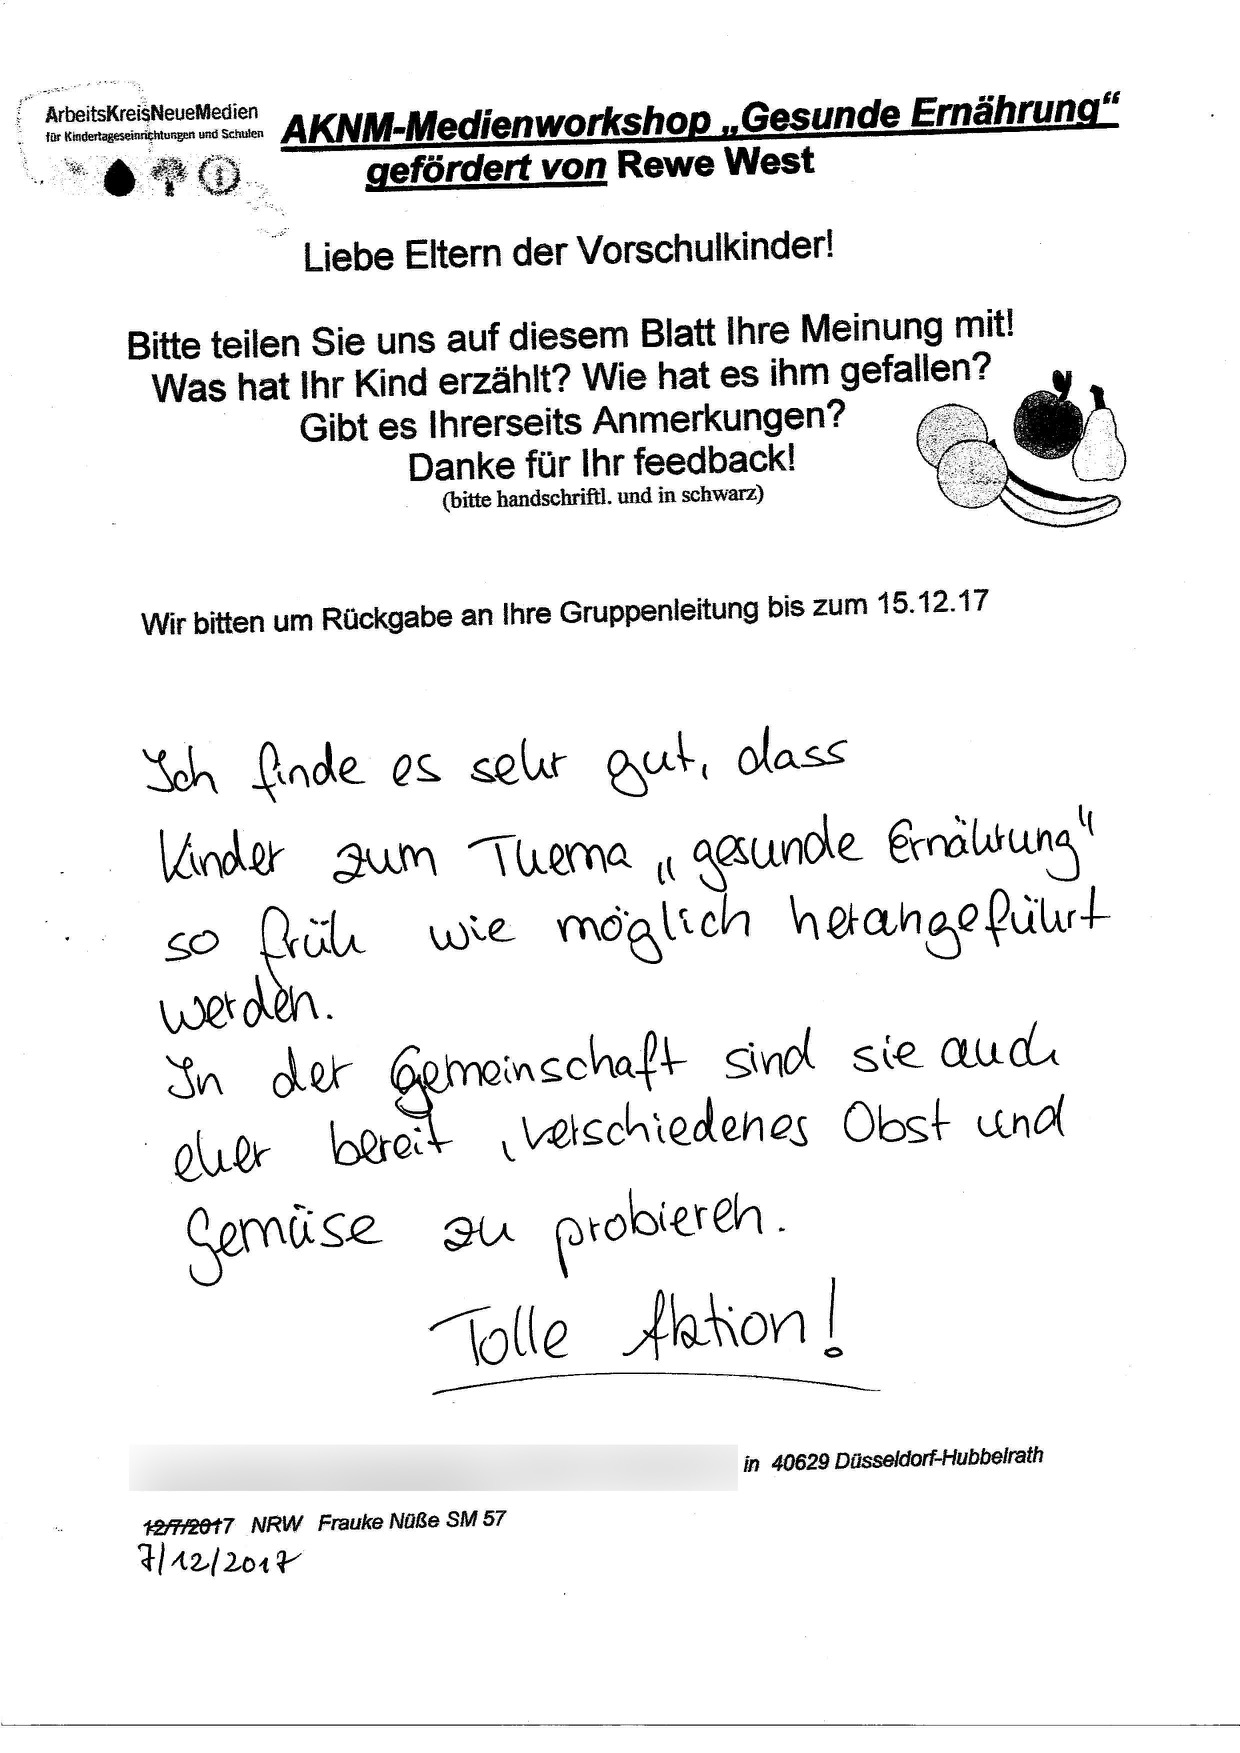 ArbeitsKreisNeueMedien
für Kindertageseinrichtungen und Schulen
AKNM-Medienworkshop „Gesunde Ernährung“
gefördert von Rewe West
Liebe Eltern der Vorschulkinder!
Bitte teilen Sie uns auf diesem Blatt Ihre Meinung mit!
Was hat Ihr Kind erzählt? Wie hat es ihm gefallen?
Gibt es Ihrerseits Anmerkungen?
Danke für Ihr feedback!
(bitte handschriftl. und in schwarz)
Wir bitten um Rückgabe an Ihre Gruppenleitung bis zum 15.12.17
Ich finde es sehr gut, dass
Kinder zum Thema „gesunde Ernährung“
so früh wie möglich herangeführt
werden.
In der Gemeinschaft sind sie auch
eher bereit, verschiedenes Obst und
Gemüse zu probieren.
Tolle Aktion!
in 40629 Düsseldorf-Hubbelrath
12/7/2017 NRW Frauke Nüße SM 57
7/12/2017